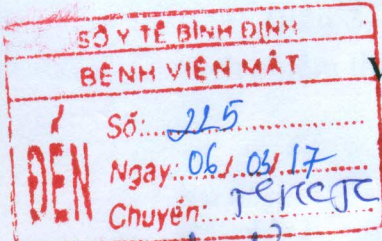 SỞ Y TẾ BÌNH ĐỊNH
BỆNH VIỆN MẮT
ĐẾN
Số:
Ngày: 06/03/17
Chuyển: